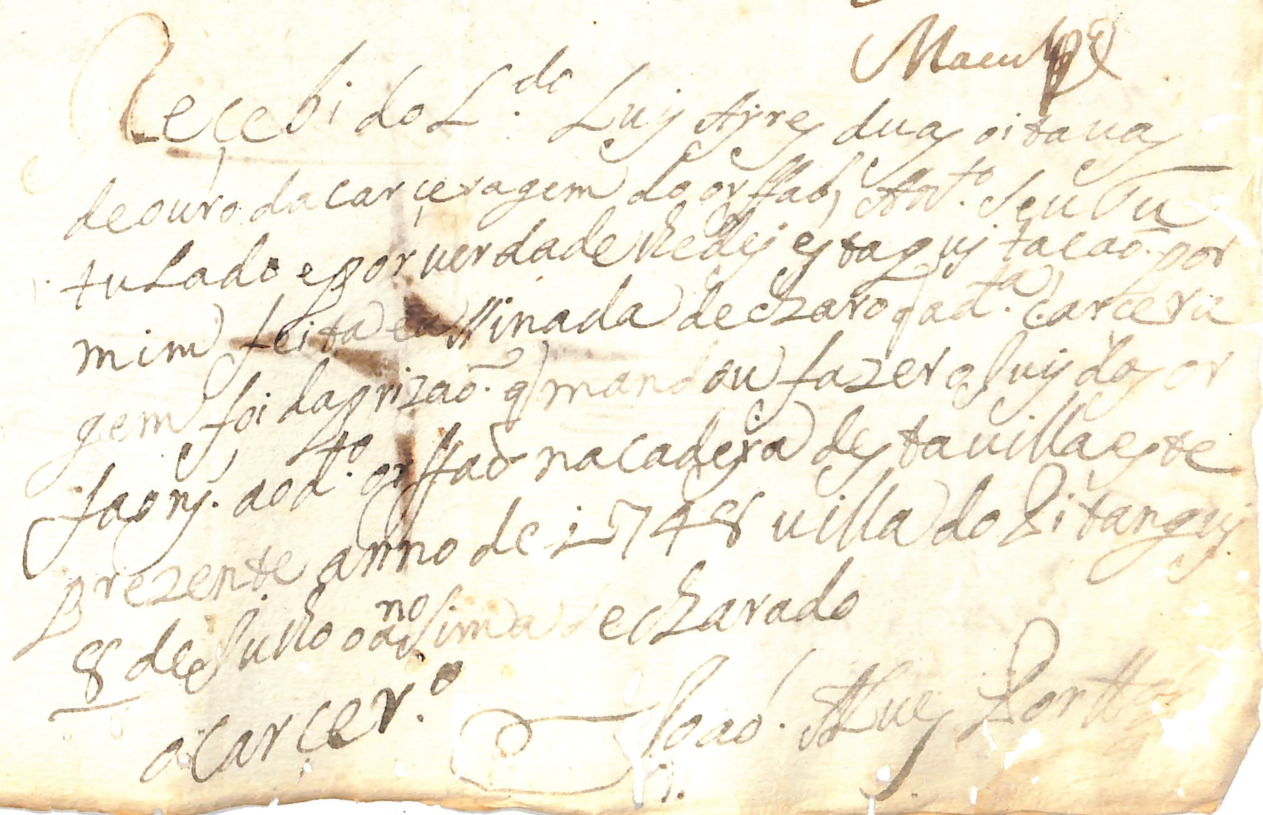 Reçebi do L.do Luis Ayres duas oitavas
de ouro da carçeragem do orffaõ Ant.o Seu Tu
tulado e por verdade lhe dej esta quitacaõ por
mim feita e asinada declaro q a d.ta carcera
gem foi da prizaõ q mandou fazer o Juis dos or
faons ao d.to orffaõ na cadeya desta villa este
prezente anno de 1748 villa do Pitanguj
8 de Julho o anno Sima decLarado
o carçer.o Joaõ Alves